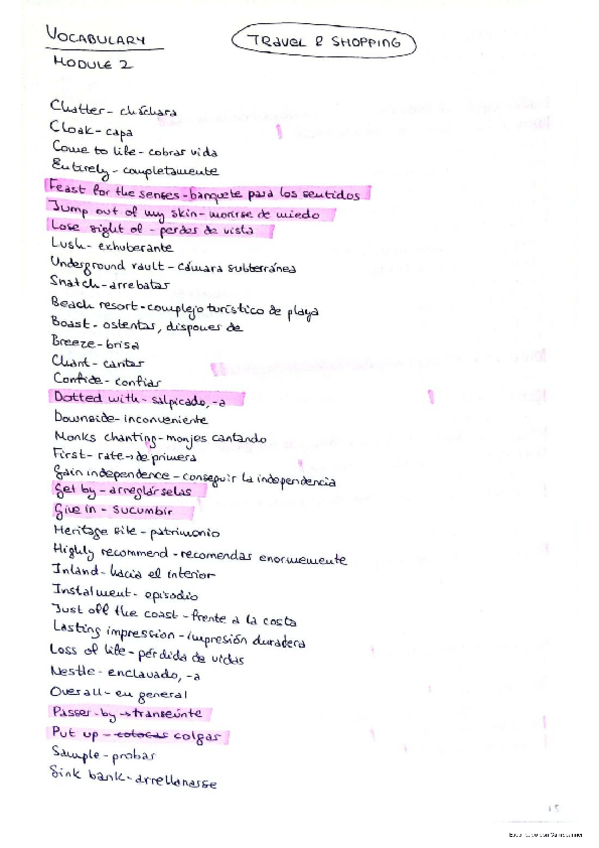 VOCABULARY
TRAVEL & SHOPPING
MODULE 2
Chatter - cháchara
Cloak - capa
Come to life - cobrar vida
Entirely - completamente
Feast for the senses - banquete para los sentidos
Jump out of my skin - morirse de miedo
Lose sight of - perder de vista
Lush - exhuberante
Underground vault - cámara subterránea
Snatch - arrebatar
Beach resort - complejo turístico de playa
Boast - ostentar, disponer de
Breeze - brisa
Chant - cantar
Confide - confiar
Dotted with - salpicado, -a
Downside - inconveniente
Monks chanting - monjes cantando
First - rate → de primera
Gain independence - conseguir la independencia
Get by - arreglárselas
Give in - sucumbir
Heritage site - patrimonio
Highly recommend - recomendar enormemente
Inland - hacia el interior
Instalment - episodio
Just off the coast - frente a la costa
Lasting impression - impresión duradera
Loss of life - pérdida de vidas
Nestle - enclavado, -a
Overall - en general
Passer-by → transeúnte
Put up - colocar colgar
Sample - probar
Sink bank - arrellanarse
15